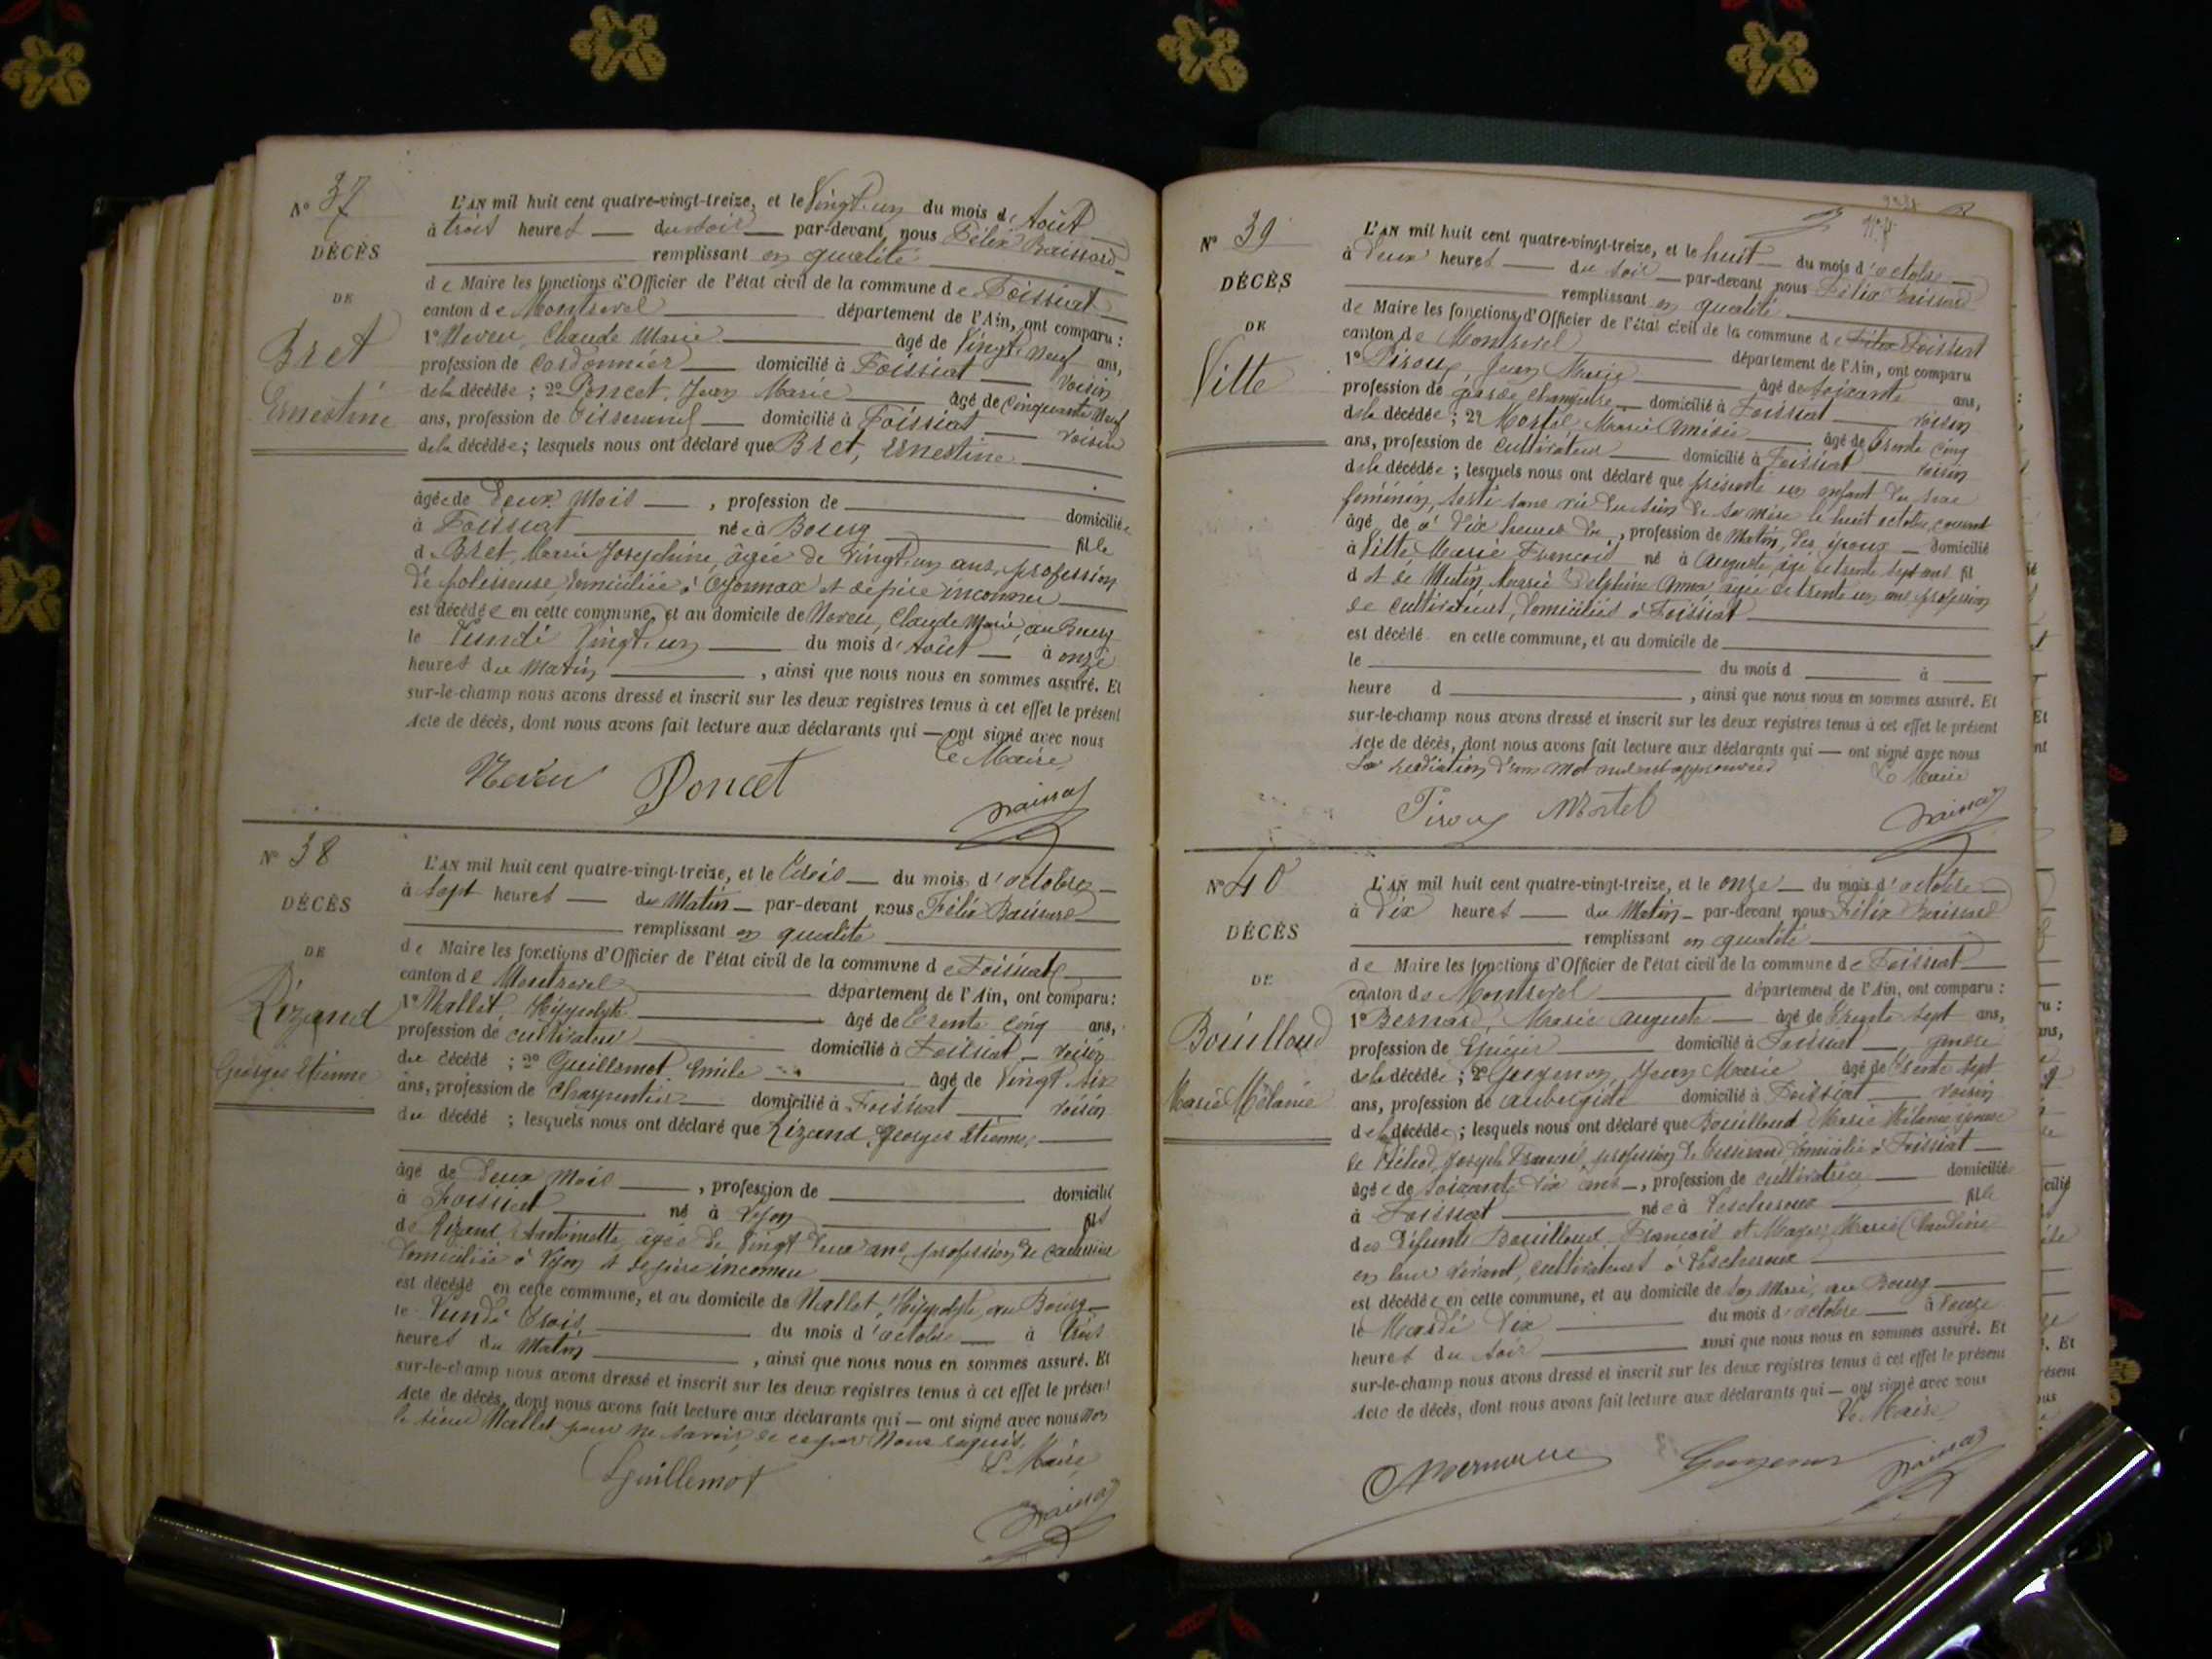 N° 37
DÉCÈS
DE
Bret
Ernestine
L'AN mil huit cent quatre-vingt-treize, et le Vingt-un du mois d'Août
à trois heures du soir par-devant nous Félix
remplissant en qualité
de Maire les fonctions d'Officier de l'état civil de la commune de Foissiat
canton de Montrevel département de l'Ain, ont comparu :
1° Neveu, Claude Marie âgé de Vingt neuf ans,
profession de Cordonnier domicilié à Foissiat voisin
de la décédée ; 2° Poncet, Jean Marie âgé de Cinquante neuf
ans, profession de Tisserand domicilié à Foissiat voisin
de la décédée ; lesquels nous ont déclaré que Bret, Ernestine
âgée de Deux mois , profession de domiciliée
à Foissiat née à Bourg fille
d Bret, Marie Josephine, âgée de Vingt-un ans, profession
de polisseuse, domiciliée à Oyonnax et de père inconnu
est décédée en cette commune, et au domicile de Neveu, Claude Marie, au Bourg
le Lundi Vingt-un du mois d'Août à onze
heures du Matin , ainsi que nous nous en sommes assuré. Et
sur-le-champ nous avons dressé et inscrit sur les deux registres tenus à cet effet le présent
Acte de décès, dont nous avons fait lecture aux déclarants qui — ont signé avec nous
Le Maire,
Neveu Poncet
N° 38
DÉCÈS
DE
Rizand
Georges Etienne
L'AN mil huit cent quatre-vingt-treize, et le Trois du mois d'octobre
à sept heures du Matin par-devant nous Félix
remplissant en qualité
de Maire les fonctions d'Officier de l'état civil de la commune de Foissiat
canton de Montrevel département de l'Ain, ont comparu :
1° Mallet, Hippolyte âgé de Trente cinq ans,
profession de cultivateur domicilié à Foissiat voisin
du décédé ; 2° Guillemot Emile âgé de Vingt six
ans, profession de Charpentier domicilié à Foissiat voisin
du décédé ; lesquels nous ont déclaré que Rizand, Georges Etienne,
âgé de Deux mois , profession de domicilié
à Foissiat né à Lyon fils
de Rizand, Antoinette, âgée de Vingt Deux ans, profession de
domiciliée à Lyon et de père inconnu
est décédé en cette commune, et au domicile de Mallet, Hippolyte, au Bourg
le Lundi Trois du mois d'octobre à trois
heures du Matin , ainsi que nous nous en sommes assuré. Et
sur-le-champ nous avons dressé et inscrit sur les deux registres tenus à cet effet le présent
Acte de décès, dont nous avons fait lecture aux déclarants qui — ont signé avec nous non
le sieur Mallet pour ne savoir, de ce par Nous requis.
Le Maire,
Guillemot
N° 39
DÉCÈS
DE
Vitte
L'AN mil huit cent quatre-vingt-treize, et le huit du mois d'octobre
à Deux heures du soir par-devant nous Félix
remplissant en qualité
de Maire les fonctions d'Officier de l'état civil de la commune de Foissiat
canton de Montrevel département de l'Ain, ont comparu
1° Piroux, Jean Marie âgé de soixante ans,
profession de garde champêtre domicilié à Foissiat voisin
de la décédée ; 2° Mortel Marie Amédée âgé de Trente cinq
ans, profession de cultivateur domicilié à Foissiat voisin
de la décédée ; lesquels nous ont déclaré que présenté un enfant du sexe
féminin, sorti sans vie du sein de sa mère le huit octobre courant
âgé de à Dix heures du , profession de Matin, des époux domicilié
à Vitte Marie François né à Auguste, âgé de trente sept ans fil
d et de Mutin Marie Delphine Anna âgée de trente un ans profession
de cultivateurs, domiciliés à Foissiat
est décédé en cette commune, et au domicile de
le du mois d à
heure d , ainsi que nous nous en sommes assuré. Et
sur-le-champ nous avons dressé et inscrit sur les deux registres tenus à cet effet le présent
Acte de décès, dont nous avons fait lecture aux déclarants qui — ont signé avec nous
La radiation d'un mot nul est approuvée
Le Maire
Piroux Mortel
N° 40
DÉCÈS
DE
Bouilloud
Marie Mélanie
L'AN mil huit cent quatre-vingt-treize, et le onze du mois d'octobre
à Dix heures du Matin par-devant nous Félix
remplissant en qualité
de Maire les fonctions d'Officier de l'état civil de la commune de Foissiat
canton de Montrevel département de l'Ain, ont comparu :
1° Bernard, Marie Auguste âgé de Trente sept ans,
profession de Epicier domicilié à Foissiat gendre
de la décédée ; 2° Guyenon, Jean Marie âgé de Trente sept
ans, profession de aubergiste domicilié à Foissiat voisin
de la décédée ; lesquels nous ont déclaré que Bouilloud Marie Mélanie épouse
de Joseph François, profession de Tisserand domicilié à Foissiat
âgée de soixante dix ans , profession de cultivatrice domiciliée
à Foissiat née à Lescheroux fille
des défunts Bouilloud François et Marie Claudine
en leur vivant, cultivateurs à Lescheroux
est décédée en cette commune, et au domicile de son Mari, au Bourg
le Mardi Dix du mois d'octobre à onze
heures du soir ainsi que nous nous en sommes assuré. Et
sur-le-champ nous avons dressé et inscrit sur les deux registres tenus à cet effet le présent
Acte de décès, dont nous avons fait lecture aux déclarants qui — ont signé avec nous
Le Maire,
Guyenon